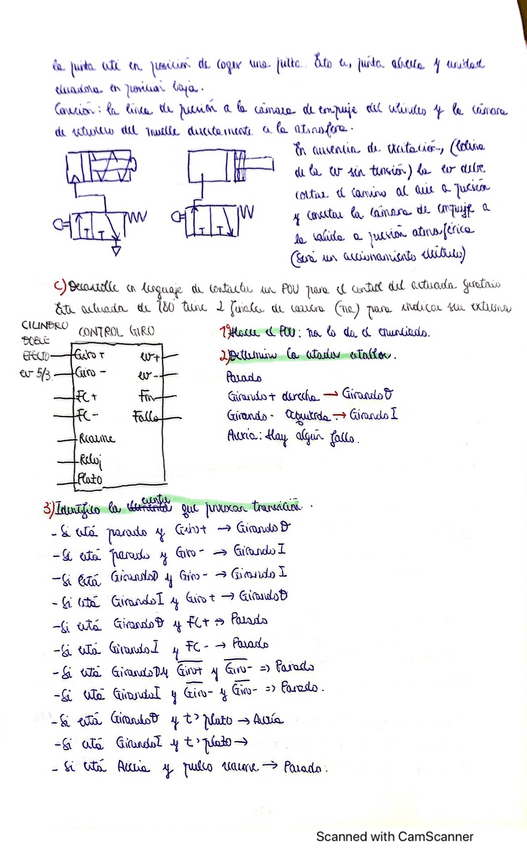 la pinta esté en posición de coger una pieza. Esto es, pinza abierta y unidad
elevadora en posición baja.
Conexión: la línea de presión a la cámara de empuje del cilindro y la cámara
de retroceso del muelle directamente a la atmósfera.
En ausencia de excitación, (bobina
de la ev sin tensión) la ev debe
cortar el camino al aire a presión
y conectar la cámara de empuje a
la salida a presión atmosférica
(será un accionamiento eléctrico)
c) Desarrolle en lenguaje de contactos un POU para el control del actuador giratorio
Este actuador de 180 tiene 2 finales de carrera (na) para indicar sus extremos
CILINDRO
DOBLE
EFECTO
ev 5/3
CONTROL GIRO
Giro+ ev+
Giro- ev-
FC+ Fin
FC- Fallo
Rearme
Reloj
Plazo
1) Hacer el POU: na lo da el enunciado.
2) Determino los estados estables.
Parado
Girando+ derecha → GirandoD
Girando- izquierda → GirandoI
Avería: Hay algún fallo.
3) Identifico los eventos que provocan transición.
- Si está parado y Giro+ → GirandoD
- Si está parado y Giro- → GirandoI
- Si está GirandoD y Giro- → GirandoI
- Si está GirandoI y Giro+ → GirandoD
- Si está GirandoD y FC+ → Parado
- Si está GirandoI y FC- → Parado
- Si está GirandoD y Giro+ y Giro- => Parado
- Si está GirandoI y Giro- y Giro- => Parado.
- Si está GirandoD y t>plazo → Avería
- Si está GirandoI y t>plazo →
- Si está Avería y pulso rearme → Parado.
Scanned with CamScanner